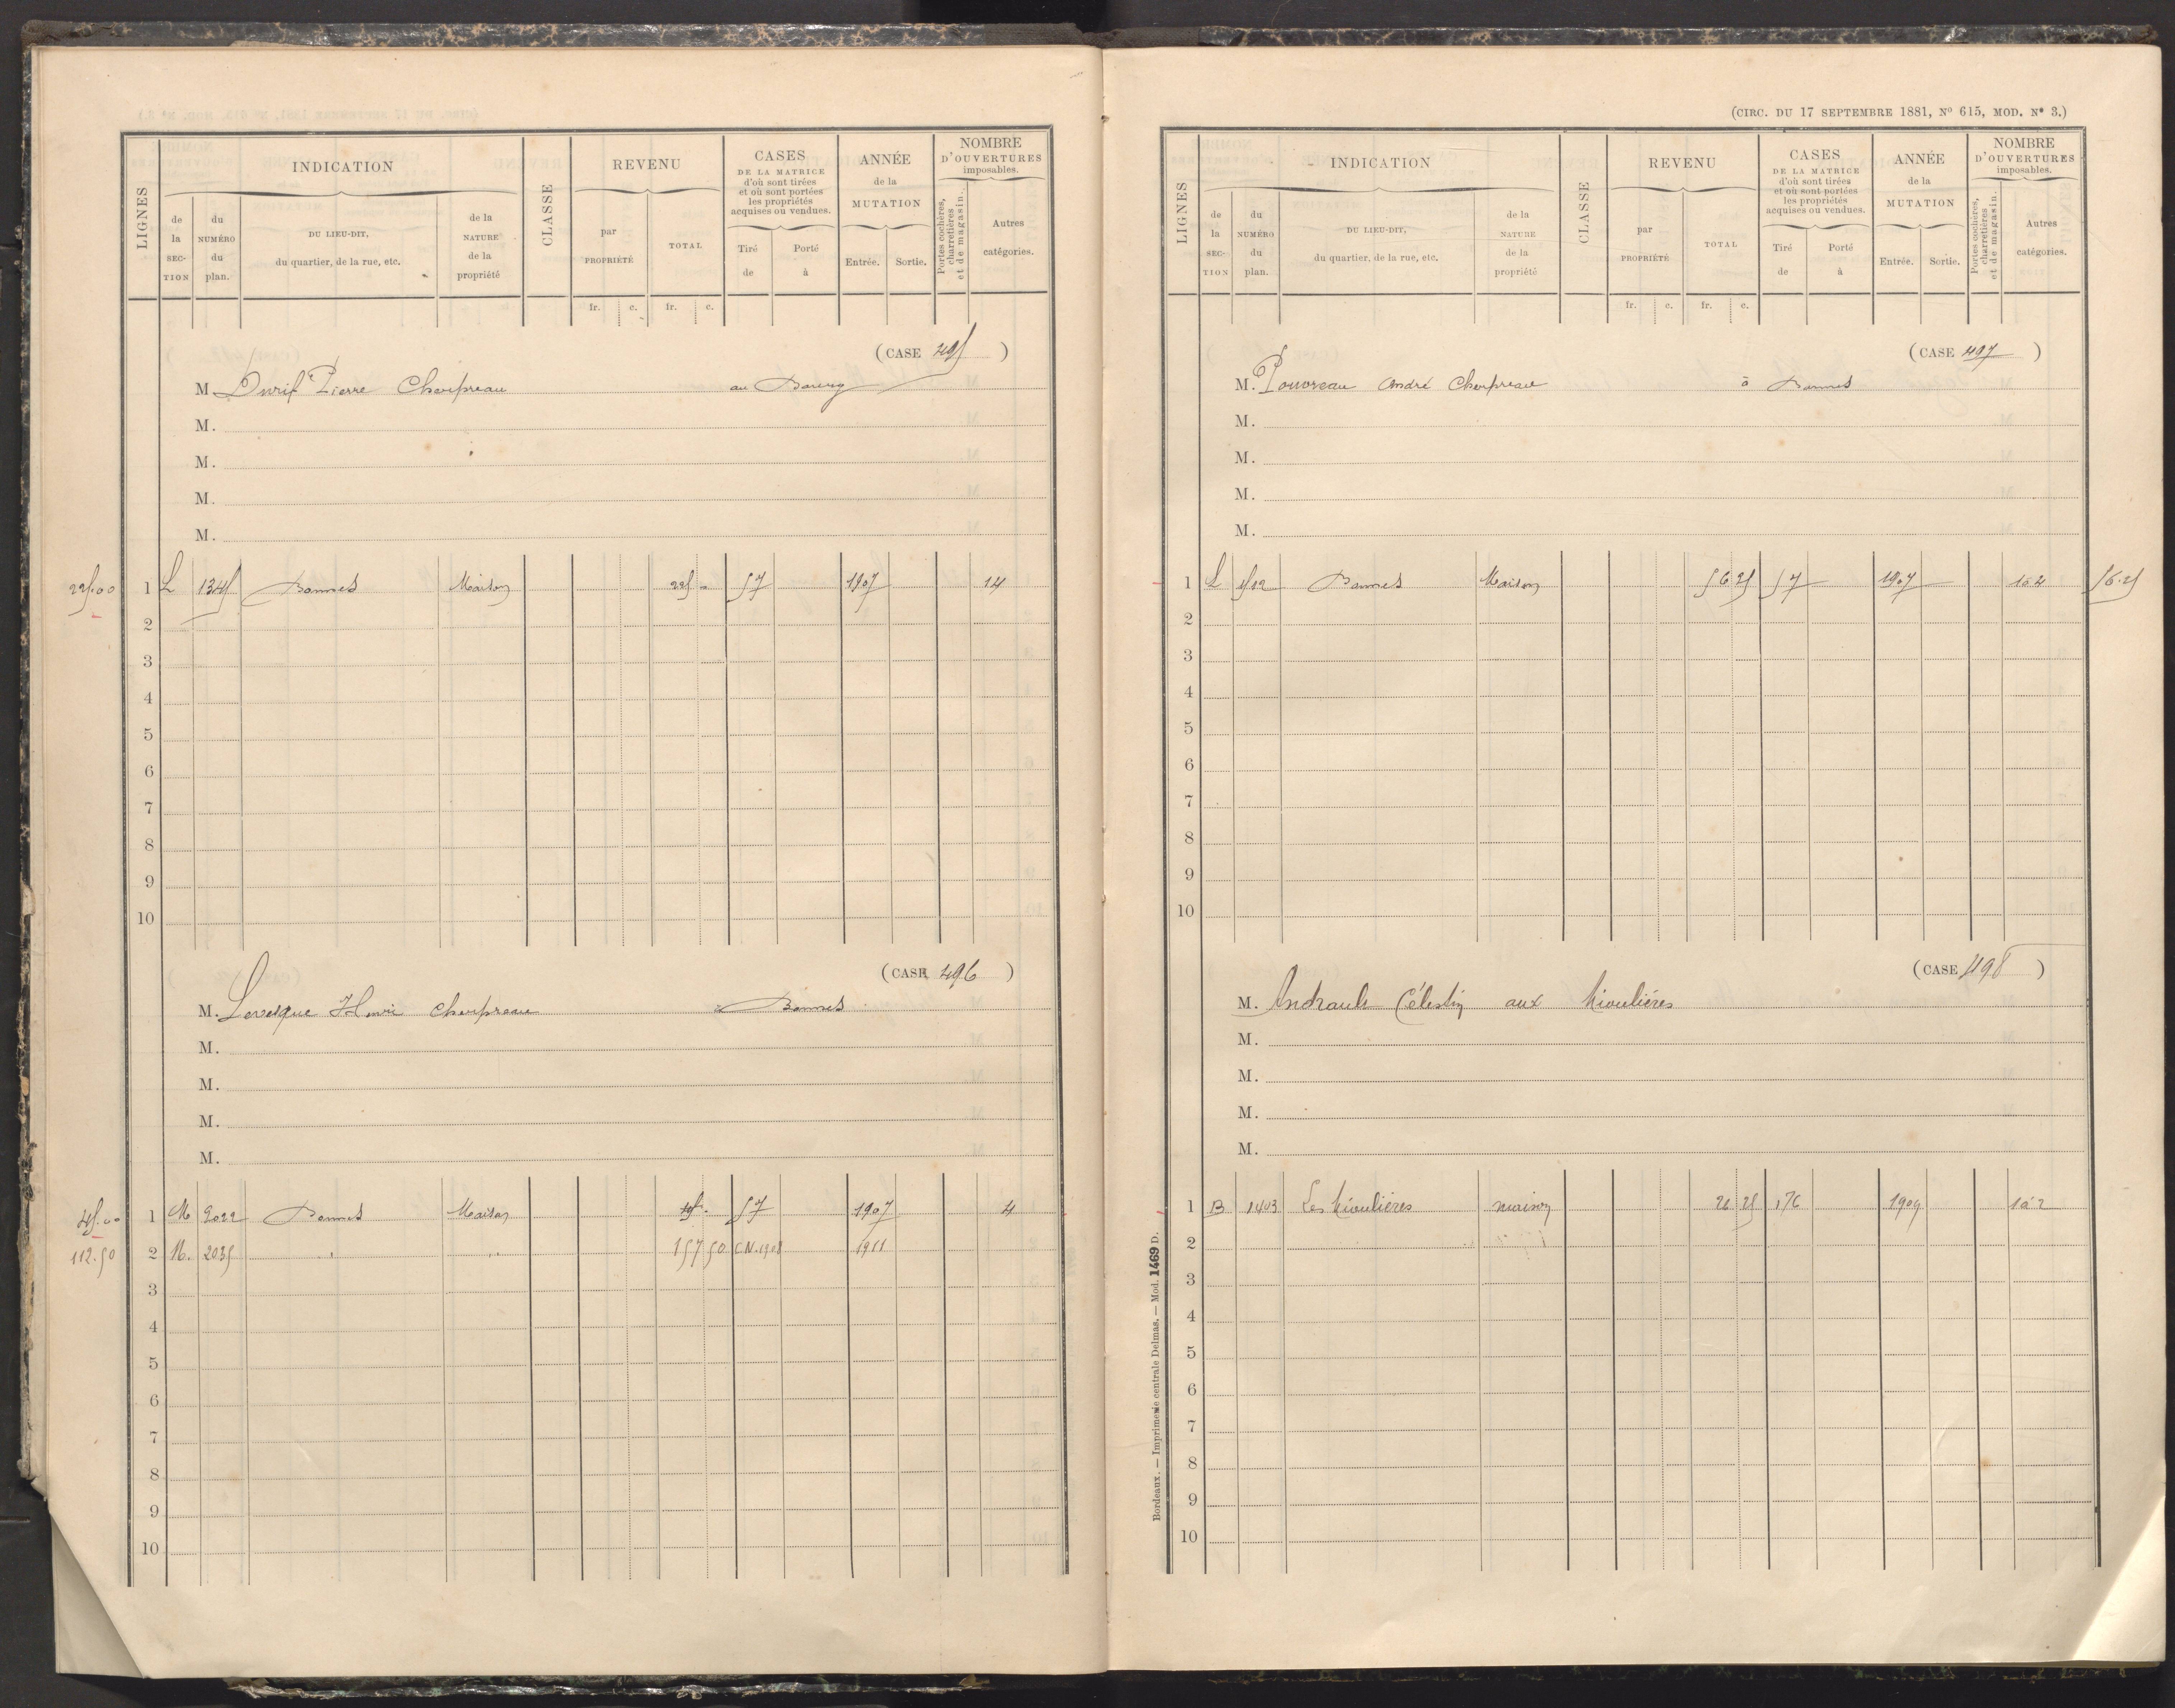 LIGNES
INDICATION
de la SECTION
du NUMÉRO du plan.
DU LIEU-DIT, du quartier, de la rue, etc.
de la NATURE de la propriété
CLASSE
REVENU
par PROPRIÉTÉ
TOTAL
CASES DE LA MATRICE d'où sont tirées et où sont portées les propriétés acquises ou vendues.
Tiré de
Porté à
ANNÉE de la MUTATION
Entrée.
Sortie.
NOMBRE D'OUVERTURES imposables.
Portes cochères, charretières et de magasin.
Autres catégories.
fr. c. fr. c.
(CASE 495 )
M Durif Pierre Charpreau au Bourg
M.
M.
M.
M.
225.00 1 L 1345 Maison 225 - 57 1907 14
2
3
4
5
6
7
8
9
10
(CASE 496 )
M. Levesque Henri Charpreau à
M.
M.
M.
M.
45.00 1 M 2022 Maison 45 - 57 1907 4
112.50 2 M. 2035 " " 157 50 C.N.1908 1911
3
4
5
6
7
8
9
10
(CIRC. DU 17 SEPTEMBRE 1881, N° 615, MOD. N° 3.)
LIGNES
INDICATION
de la SECTION
du NUMÉRO du plan.
DU LIEU-DIT, du quartier, de la rue, etc.
de la NATURE de la propriété
CLASSE
REVENU
par PROPRIÉTÉ
TOTAL
CASES DE LA MATRICE d'où sont tirées et où sont portées les propriétés acquises ou vendues.
Tiré de
Porté à
ANNÉE de la MUTATION
Entrée.
Sortie.
NOMBRE D'OUVERTURES imposables.
Portes cochères, charretières et de magasin.
Autres catégories.
fr. c. fr. c.
(CASE 497 )
M. Pouvreau André Charpreau à
M.
M.
M.
M.
1 L Maison 56 25 57 1907 1à2 56.25
2
3
4
5
6
7
8
9
10
(CASE 498 )
M. Andrault Célestin aux
M.
M.
M.
M.
1 B 1403 Les maison 26 25 176 1909 1à2
2
3
4
5
6
7
8
9
10
Bordeaux. — Imprimerie centrale Delmas. — Mod. 1469 D.